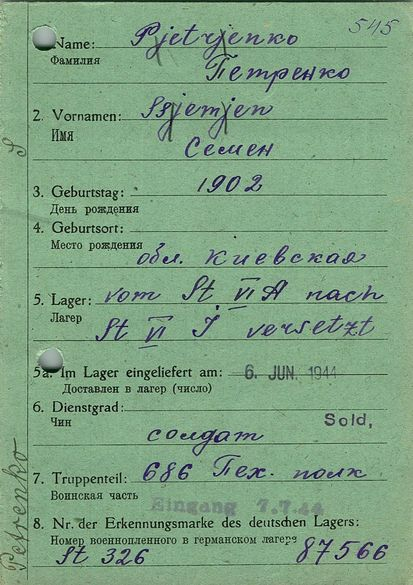 545
Name: Pjetrjenko
Фамилия
Петренко
2. Vornamen: Ssjemjen
ИМЯ
Семен
3. Geburtstag: 1902
День рождения
4. Geburtsort:
Место рождения
обл. Киевская
5. Lager: vom St. VI A nach
Лагер
St VI J versetzt
5a. Im Lager eingeliefert am: 6. JUN. 1944
Доставлен в лагер (число)
6. Dienstgrad: Sold,
Чин
солдат
7. Truppenteil: 686 Пех. полк
Воинская часть
Eingang 7.7.44
8. Nr. der Erkennungsmarke des deutschen Lagers:
Номер военнопленного в германском лагере
St 326 87566
Petrenko S